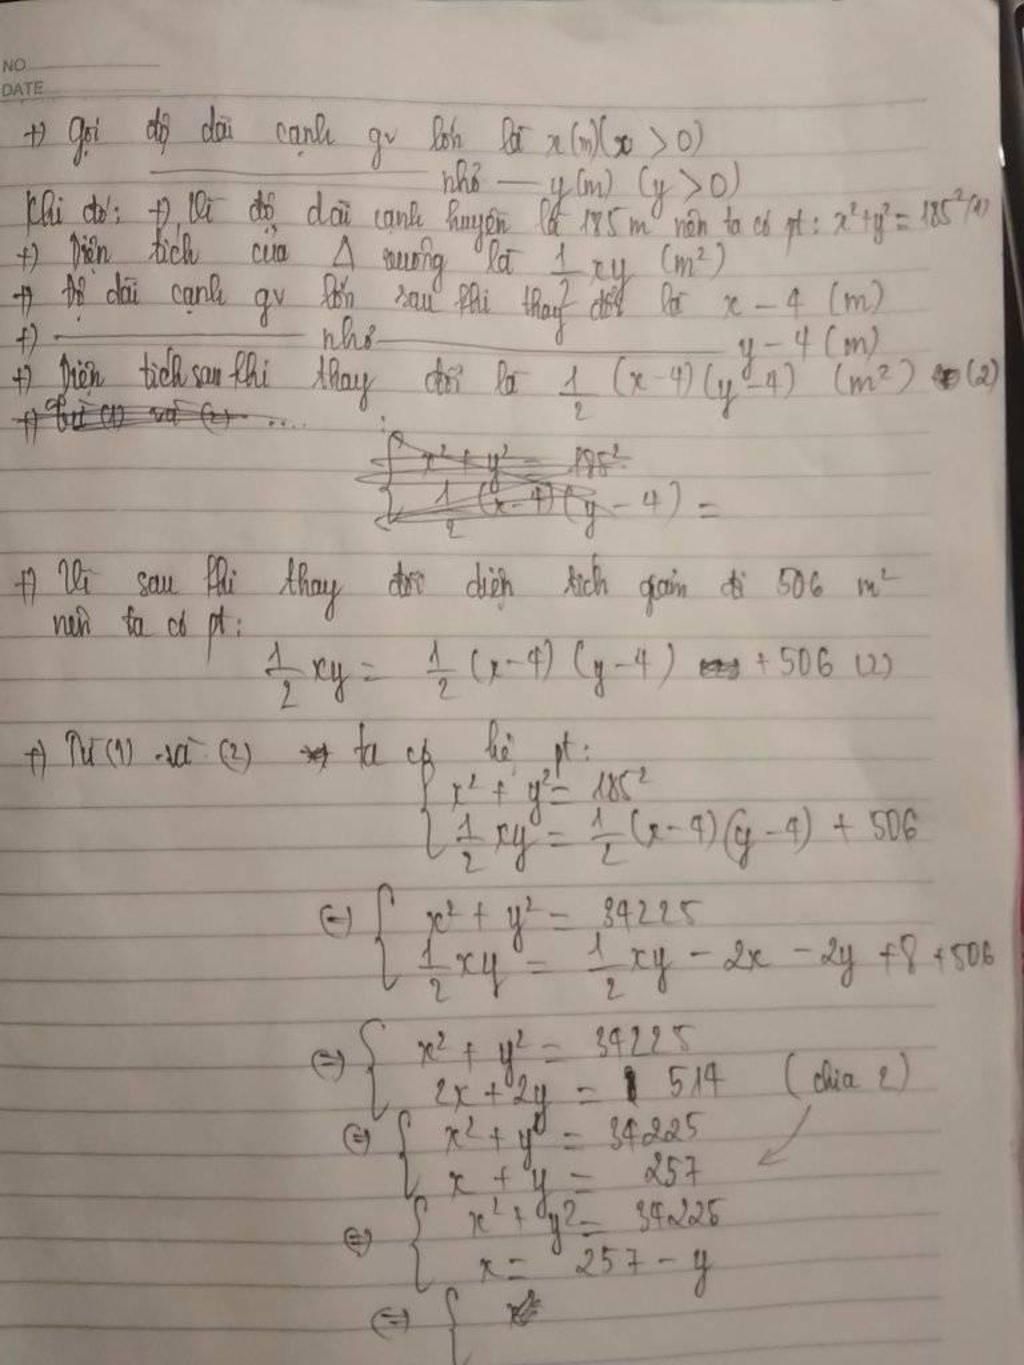 NO
DATE
+) Gọi độ dài cạnh gv lớn là x(m)(x > 0)
nhỏ — y(m) (y > 0)
Khi đó: +) Vì độ dài cạnh huyền là 185m nên ta có pt: x²+y² = 185² (1)
+) Diện tích của Δ vuông là 1/2 xy (m²)
+) Độ dài cạnh gv lớn sau khi thay đổi là x - 4 (m)
+) nhỏ y - 4 (m)
+) Diện tích sau khi thay đổi là 1/2 (x-4)(y-4) (m²) (2)
+) Từ (1) và (2) ....
x² + y² = 185²
1/2 (x-4)(y-4) =
+) Vì sau khi thay đổi diện tích giảm đi 506 m²
nên ta có pt:
1/2 xy = 1/2 (x-4)(y-4) + 506 (2)
+) Từ (1) và (2) ta có hệ pt:
x² + y² = 185²
1/2 xy = 1/2 (x-4)(y-4) + 506
(=) x² + y² = 34225
1/2 xy = 1/2 xy - 2x - 2y + 8 + 506
(=) x² + y² = 34225
2x + 2y = 514 (chia 2)
(=) x² + y² = 34225
x + y = 257
(=) x² + y² = 34225
x = 257 - y
(=) {